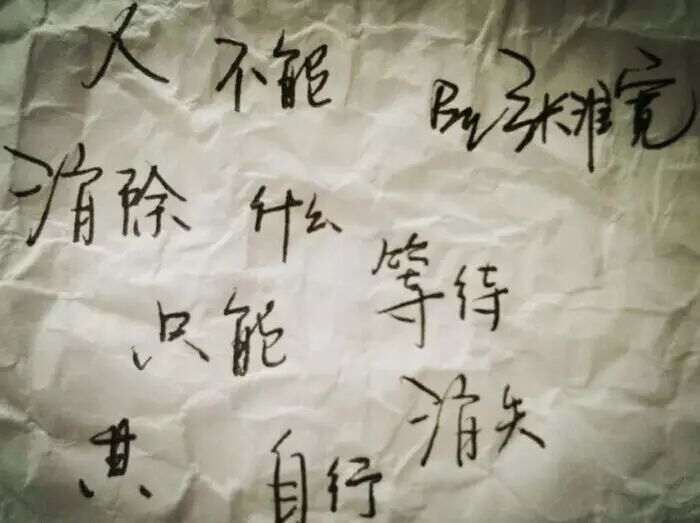 人 不能
By 张准宽
消除 什么
只能 等待
其 自行 消失